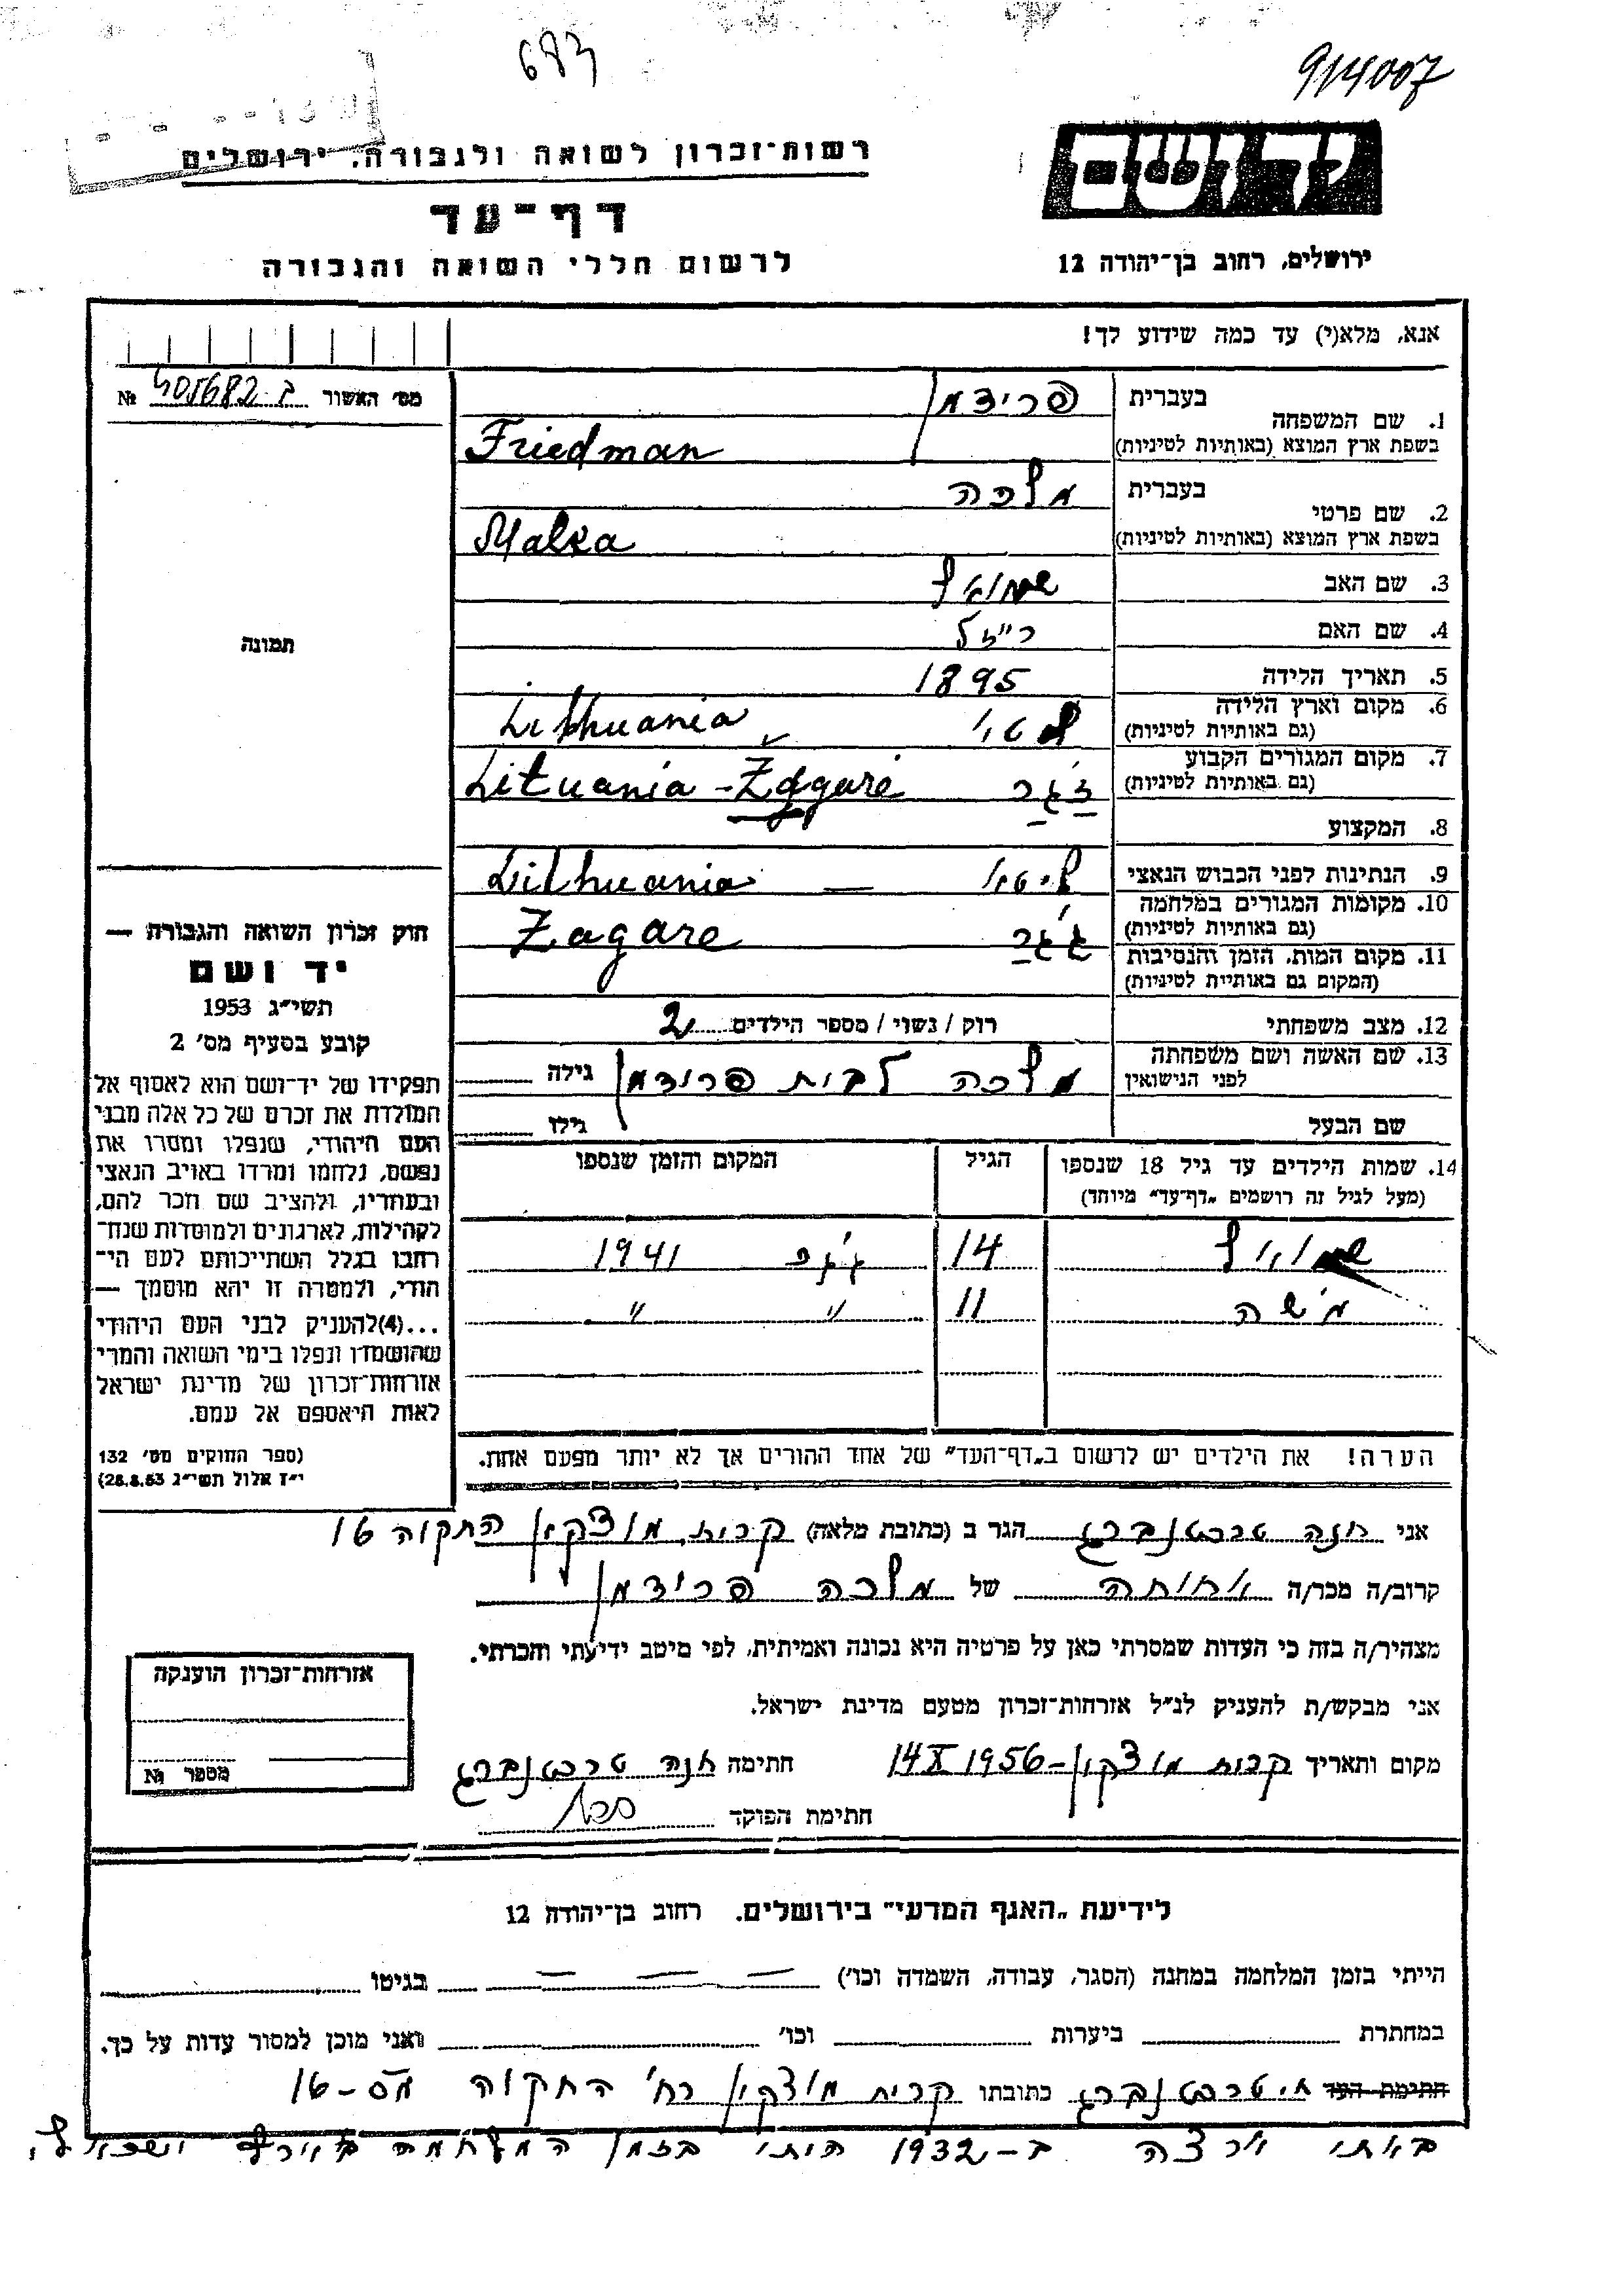 683
914007
רשות־זכרון לשואה ולגבורה, ירושלים
דף־עד
לרשום חללי השואה והגבורה
ירושלים, רחוב בן־יהודה 12
אנא, מלא(י) עד כמה שידוע לך!
מס׳ האשור ב 405682 №
1. שם המשפחה
בעברית פרידמן
בשפת ארץ המוצא (באותיות לטיניות) Friedman
2. שם פרטי
בעברית מלכה
בשפת ארץ המוצא (באותיות לטיניות) Malka
3. שם האב שמואל
4. שם האם רייזל
5. תאריך הלידה 1895
6. מקום וארץ הלידה
(גם באותיות לטיניות) Lithuania
7. מקום המגורים הקבוע
(גם באותיות לטיניות) ז׳גר Lituania - Žagarė
8. המקצוע
9. הנתינות לפני הכבוש הנאצי ליטא — Lithuania
10. מקומות המגורים במלחמה
(גם באותיות לטיניות) ז׳גר Zagare
11. מקום המות, הזמן והנסיבות
(המקום גם באותיות לטיניות)
12. מצב משפחתי רוק / נשוי / מספר הילדים 2
13. שם האשה ושם משפחתה
לפני הנישואין מלכה לבית פרידמן גילה
שם הבעל גילו
תמונה
חוק זכרון השואה והגבורה —
יד ושם
תשי״ג 1953
קובע בסעיף מס׳ 2
תפקידו של יד־ושם הוא לאסוף אל
המולדת את זכרם של כל אלה מבני
העם היהודי, שנפלו ומסרו את
נפשם, נלחמו ומרדו באויב הנאצי
ובעוזריו, ולהציב שם וזכר להם,
לקהילות, לארגונים ולמוסדות שנח־
רבו בגלל השתייכותם לעם הי־
הודי, ולמטרה זו יהא מוסמך —
...(4)להעניק לבני העם היהודי
שהושמדו ונפלו בימי השואה והמרי
אזרחות־זכרון של מדינת ישראל
לאות היאספם אל עמם.
(ספר החוקים מס׳ 132
י״ז אלול תשי״ג 28.8.53)
14. שמות הילדים עד גיל 18 שנספו הגיל המקום והזמן שנספו
(מעל לגיל זה רושמים „דף־עד״ מיוחד)
שמואל 14 ז׳גר 1941
משה 11 " "
הערה! את הילדים יש לרשום ב„דף־העד״ של אחד ההורים אך לא יותר מפעם אחת.
אני חנה טרכטנברג הגר ב (כתובת מלאה) קרית מוצקין התקוה 16
קרוב/ה מכר/ה אחותה של מלכה פרידמן
מצהיר/ה בזה כי העדות שמסרתי כאן על פרטיה היא נכונה ואמיתית, לפי מיטב ידיעתי והכרתי.
אני מבקש/ת להעניק לנ״ל אזרחות־זכרון מטעם מדינת ישראל.
מקום ותאריך קרית מוצקין - 14 X 1956 חתימה חנה טרכטנברג
חתימת הפוקד
אזרחות־זכרון הוענקה
מספר №
לידיעת „האגף המדעי״ בירושלים. רחוב בן־יהודה 12
הייתי בזמן המלחמה במחנה (הסגר, עבודה, השמדה וכו׳) — — — בגיטו
במחתרת ביערות וכו׳ ואני מוכן למסור עדות על כך.
חתימת העד ח. טרכטנברג כתובתו קרית מוצקין רח׳ התקוה מס-16
באתי ארצה ב-1932 הייתי בזמן המלחמה בארץ ישראל.